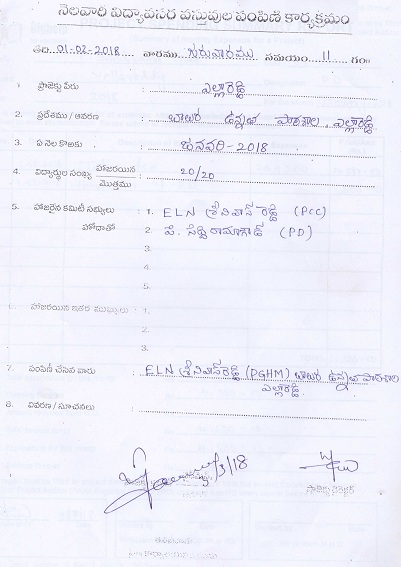 నెలవారి విద్యావసర వస్తువుల పంపిణి కార్యక్రమం
తేది 01-02-2018 వారము గురువారము సమయం 11 గం॥
1. ప్రాజెక్టు పేరు ఎల్లారెడ్డి
2. ప్రదేశము / ఆవరణ బాలుర ఉన్నత పాఠశాల, ఎల్లారెడ్డి
3. ఏ నెల కొఱకు జనవరి-2018
4. విద్యార్థుల సంఖ్య హాజరయిన / మొత్తము 20/20
5. హాజరైన కమిటీ సభ్యులు 1. ELN శ్రీనివాస్ రెడ్డి (PCC)
హోదాతో 2. (PD)
3.
4.
5.
6. హాజరయిన ఇతర ముఖ్యులు 1.
2.
3.
7. పంపిణీ చేసిన వారు ELN శ్రీనివాస్ రెడ్డి (PGHM) బాలుర ఉన్నత పాఠశాల
ఎల్లారెడ్డి
8. వివరణ / సూచనలు
/3/18
ప్రాజెక్టు డైరెక్టర్